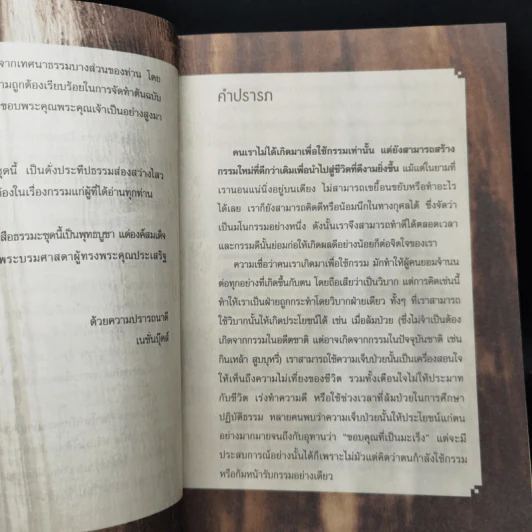 จากเทศนาธรรมบางส่วนของท่าน โดย
ามถูกต้องเรียบร้อยในการจัดทำต้นฉบับ
ขอบพระคุณพระคุณเจ้าเป็นอย่างสูงมา
ชุดนี้ เป็นดั่งประทีปธรรมส่องสว่างไสว
ต้องในเรื่องกรรมแก่ผู้ที่ได้อ่านทุกท่าน
สือธรรมะชุดนี้เป็นพุทธบูชา แด่องค์สมเด็จ
พระบรมศาสดาผู้ทรงพระคุณประเสริฐ
ด้วยความปรารถนาดี
เนชั่นบุ๊คส์
คำปรารภ
คนเราไม่ได้เกิดมาเพื่อใช้กรรมเท่านั้น แต่ยังสามารถสร้าง
กรรมใหม่ที่ดีกว่าเดิมเพื่อนำไปสู่ชีวิตที่ดีงามยิ่งขึ้น แม้แต่ในยามที่
เรานอนแน่นิ่งอยู่บนเตียง ไม่สามารถเขยื้อนขยับหรือทำอะไร
ได้เลย เราก็ยังสามารถคิดดีหรือน้อมนึกในทางกุศลได้ ซึ่งจัดว่า
เป็นมโนกรรมอย่างหนึ่ง ดังนั้นเราจึงสามารถทำดีได้ตลอดเวลา
และกรรมดีนั้นย่อมก่อให้เกิดผลดีอย่างน้อยก็ต่อจิตใจของเรา
ความเชื่อว่าคนเราเกิดมาเพื่อใช้กรรม มักทำให้ผู้คนยอมจำนน
ต่อทุกอย่างที่เกิดขึ้นกับตน โดยถือเสียว่าเป็นวิบาก แต่การคิดเช่นนี้
ทำให้เราเป็นฝ่ายถูกกระทำโดยวิบากฝ่ายเดียว ทั้งๆ ที่เราสามารถ
ใช้วิบากนั้นให้เกิดประโยชน์ได้ เช่น เมื่อล้มป่วย (ซึ่งไม่จำเป็นต้อง
เกิดจากกรรมในอดีตชาติ แต่อาจเกิดจากกรรมในปัจจุบันชาติ เช่น
กินเหล้า สูบบุหรี่) เราสามารถใช้ความเจ็บป่วยนั้นเป็นเครื่องสอนใจ
ให้เห็นถึงความไม่เที่ยงของชีวิต รวมทั้งเตือนใจไม่ให้ประมาท
กับชีวิต เร่งทำความดี หรือใช้ช่วงเวลาที่ล้มป่วยในการศึกษา
ปฏิบัติธรรม หลายคนพบว่าความเจ็บป่วยนั้นให้ประโยชน์แก่ตน
อย่างมากมายจนถึงกับอุทานว่า "ขอบคุณที่เป็นมะเร็ง" แต่จะมี
ประสบการณ์อย่างนั้นได้ก็เพราะไม่มัวแต่คิดว่าตนกำลังใช้กรรม
หรือก้มหน้ารับกรรมอย่างเดียว